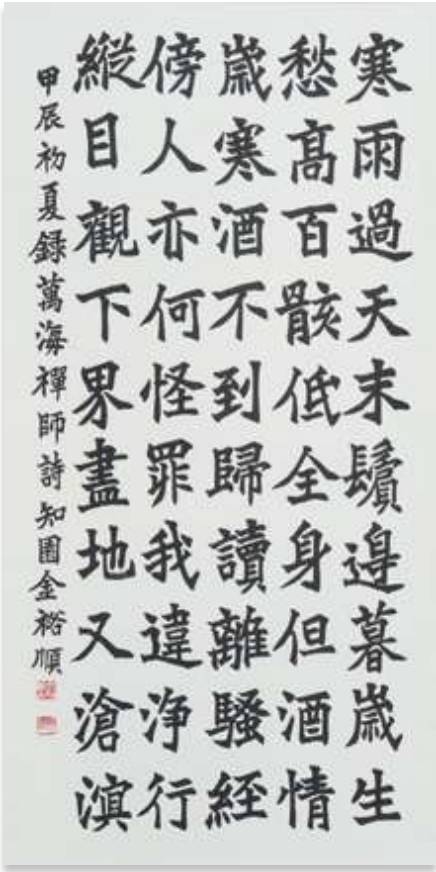 寒雨過天末鬢邊暮歲生
愁高百骸低全身但酒情
歲寒酒不到歸讀離騷經
傍人亦何怪罪我違淨行
縱目觀下界盡地又滄溟
甲辰初夏録萬海禪師詩知園金裕順